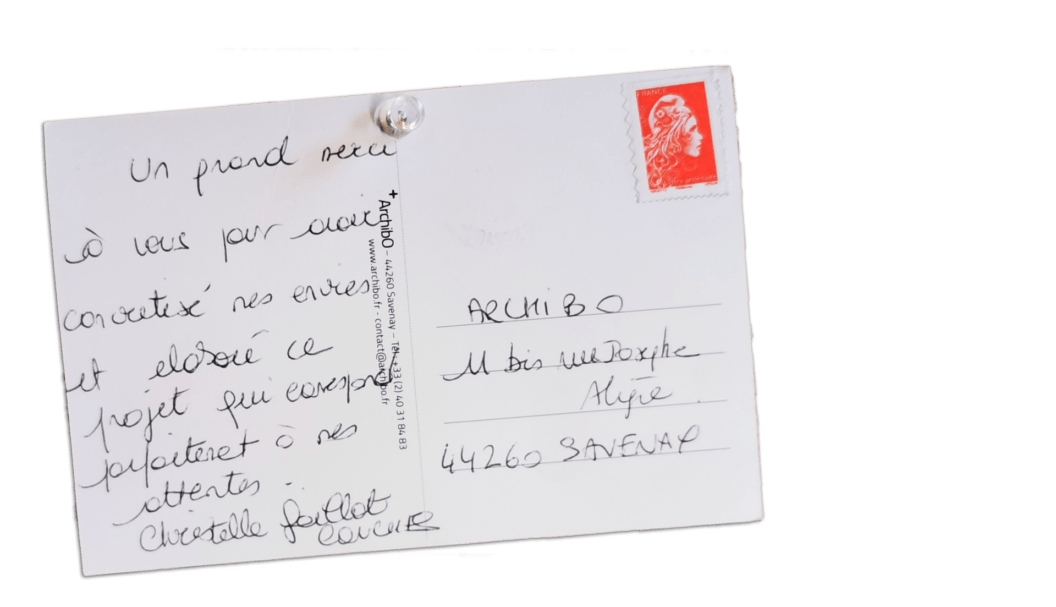 Un grand merci
à vous pour avoir
concretisé nos envies
et elaboré ce
projet qui correspond
parfaitement à nos
attentes.
Christelle
+ ArchibO – 44260 Savenay – Tél. +33 (2) 40 31 84 83
www.archibo.fr - contact@archibo.fr
FRANCE
ARCHIBO
11 bis rue
44260 SAVENAY